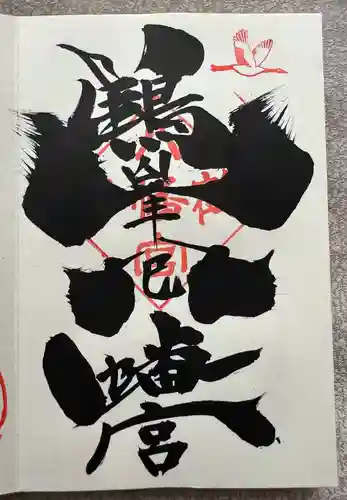 鶴峯八幡宮